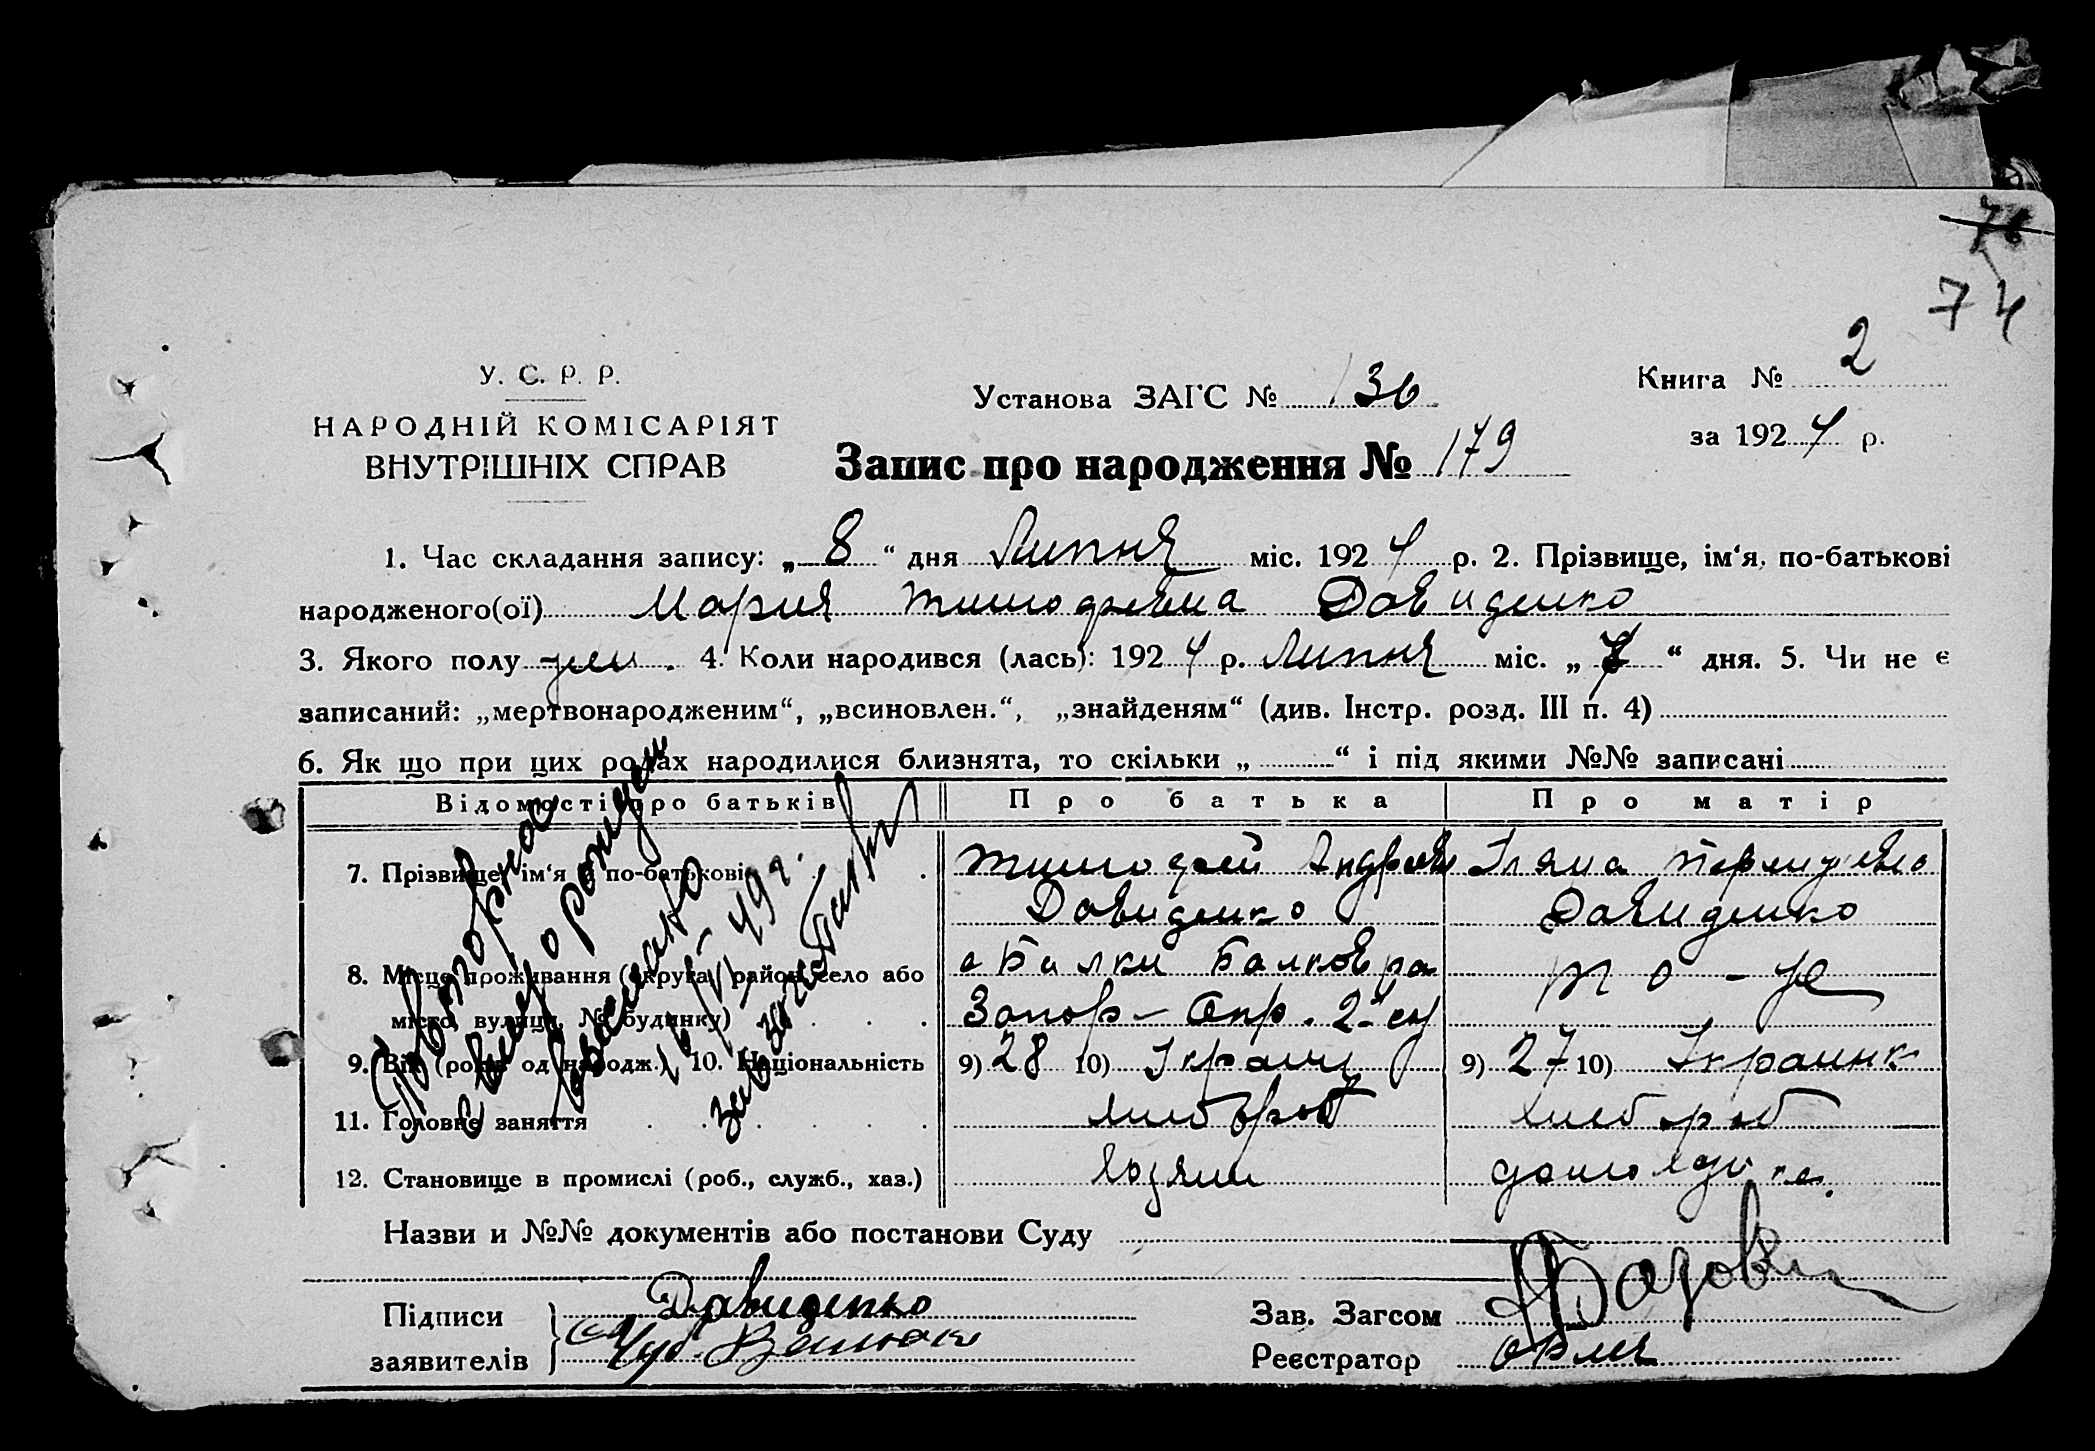 76
74
У. С. Р. Р.
НАРОДНІЙ КОМІСАРІЯТ
ВНУТРІШНІХ СПРАВ
Установа ЗАГС № 136
Книга № 2
за 1924 р.
Запис про народження № 179
1. Час складання запису: „ 8 “ дня Липня міс. 1924 р. 2. Прізвище, ім‘я, по-батькові
народженого(ої) Мария Тимофеевна Давиденко
3. Якого полу жен. 4. Коли народився (лась): 1924 р. Липня міс. „ 7 “ дня. 5. Чи не є
записаний: „мертвонародженим“, „всиновлен.“, „знайденям“ (див. Інстр. розд. III п. 4)
6. Як що при цих родах народилися близнята, то скільки „ “ і під якими №№ записані
Відомості про батьків
Про батька
Про матір
7. Прізвище, ім‘я и по-батькові
Тимофей Андреев
Давиденко
Перкуиевна
Давиденко
8. Місце проживання (округа, район, село або
місто, вулиця, № будинку)
с Балки Балков ра
Запор- Окр.
то-же
9. Вік (років од народж.) 10. Національність
9) 28 10) Украин
9) 27 10) Украинк
11. Головне заняття
хлебороб
хлебороб
12. Становище в промислі (роб., служб., хаз.)
хозяин
Повторное
св-во о рожден
выслано
16/IV-49 г.
зав. загс
Назви и №№ документів або постанови Суду
Підписи
заявителів
Давиденко
Зав. Загсом
Реєстратор